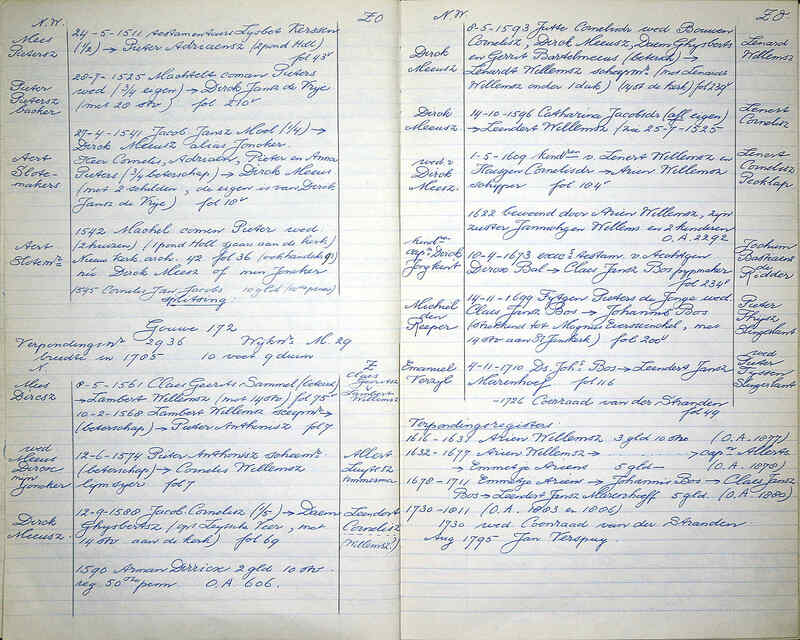 N.W. Z.O
Mees Pietersz
24-5-1511 testamentaire Lysbet Kerssen
(1/2) → Pieter Adriaensz (2 pond Holl)
fol 43v
Pieter Pietersz backer
20-7-1525 Machtelt coman Pieters
wed (3/4 eigen) → Dirck Jansz de Vrye
(met 20 stv) fol 210v
27-4-1541 Jacob Jansz Mool (1/4) →
Dirck Meesz alias Joncker
Aert Slotemakers
Heer Cornelis, Adriaen, Pieter en Anna
Pieters (3/4 beterschap) → Dirck Mees
(met 2 schilden, de eigen is van Dirck
Jansz de Vrye) fol 10v
1542 Machel comen Pieter wed
Aert Slotemr
(2 huizen) (1 pond Holl jaars aan de kerk)
Nieuw kerk. arch. 42 fol 36
nu Dirck Meesz of mijn Joncker
1545 Cornelis Jan Jacobs 10 gld
splitsing.
Gouwe 172
Verpondingsnr 2936 Wijknr M. 29
breedte in 1705 10 voet 9 duim
N. Z
Mees Dircsz
8-5-1561 Claes Geerts Sammel (beterch)
→ Lambert Willemsz (met 14 stv) fol 75v
Claes Geertsz
Lambert Willemsz
10-2-1568 Lambert Willemsz
(beterschap) → Pieter Anthonisz fol 7
wed Meeus Dircxz mijn Joncker
12-6-1574 Pieter Anthonisz scheemr
(beterschap) → Cornelis Willemsz
lijndrayer fol 7
Allert Luytsz Timmerman
Dirck Meeusz.
12-9-1588 Jacob Cornelisz (1/5) → Daem
Ghysbertsz (op 't Luyste Veer, met
14 stv aan de kerk) fol 69
Leendert Cornelisz
(Willemsz?)
1590 Arman Dirricx 2 gld 10 stv
reg. 50ste penn. O.A. 606.
N.W. Z.O
Dirck Meeusz
8-5-1593 Jutte Cornelisdr wed Bouwen
Cornelisz, Dirck Meeusz, Daem Ghysberts
en Gerrit Bartelmeeus (beterch) →
Lenardt Willemsz scheepmr (met Lenards
Willemsz onder 1 dak) (14 st de kerk) fol 239v
Lenard Willemsz
Dirck Meeusz
14-10-1596 Catharina Jacobsdr (aff eigen)
→ Leendert Willemsz (zie 25-7-1525
Lenert Cornelisz
wed v Dirck Meesz.
1-5-1609 kindren v. Lenert Willemsz en
Haesgen Cornelisdr → Arien Willemsz
schipper fol 104v
Lenert Cornelisz Pecklap
1622 bewoond door Arien Willemsz, zijn
zuster Jannichgen Willems en 2 kinderen
O.A. 2292
kindren capn Dirck Jongkint
10-4-1673 execrs testam. v. Aechtgen
Dircx Bal → Claes Jansz Bos pypmaker
fol 234v
Jochum Bastiaens de Ridder
Michiel den Keeper
14-11-1699 Fytgen Pieters de Jonge wed.
Claes Jansz Bos → Johannis Bos
(strekkend tot Magnus Eerstewinckel, met
19 stv aan St Janskerk) fol 200v
Pieter Thysz Slingelant
Emanuel Verzyl
4-11-1710 Ds Johs Bos → Leendert Jansz
Marenhoff fol 116
wed Pieter Tysson Slingelant
-1726 Coenraad van der Stranden
fol 49
Verpondingsregisters
1616-1631 Arien Willemsz 3 gld 10 stv (O.A. 1877)
1632-1677 Arien Willemsz → capn Allerts
→ Emmetje Ariens 5 gld - (O.A. 1878)
1678-1711 Emmetje Ariens → Johannis Bos → Claes Jansz
Bos → Leendert Jansz Marenhoff 5 gld. (O.A. 1880)
1730-1811 (O.A. 1803 en 1806)
1730 wed Coenraad van der Stranden
Aug 1795 Jan Verspuy.